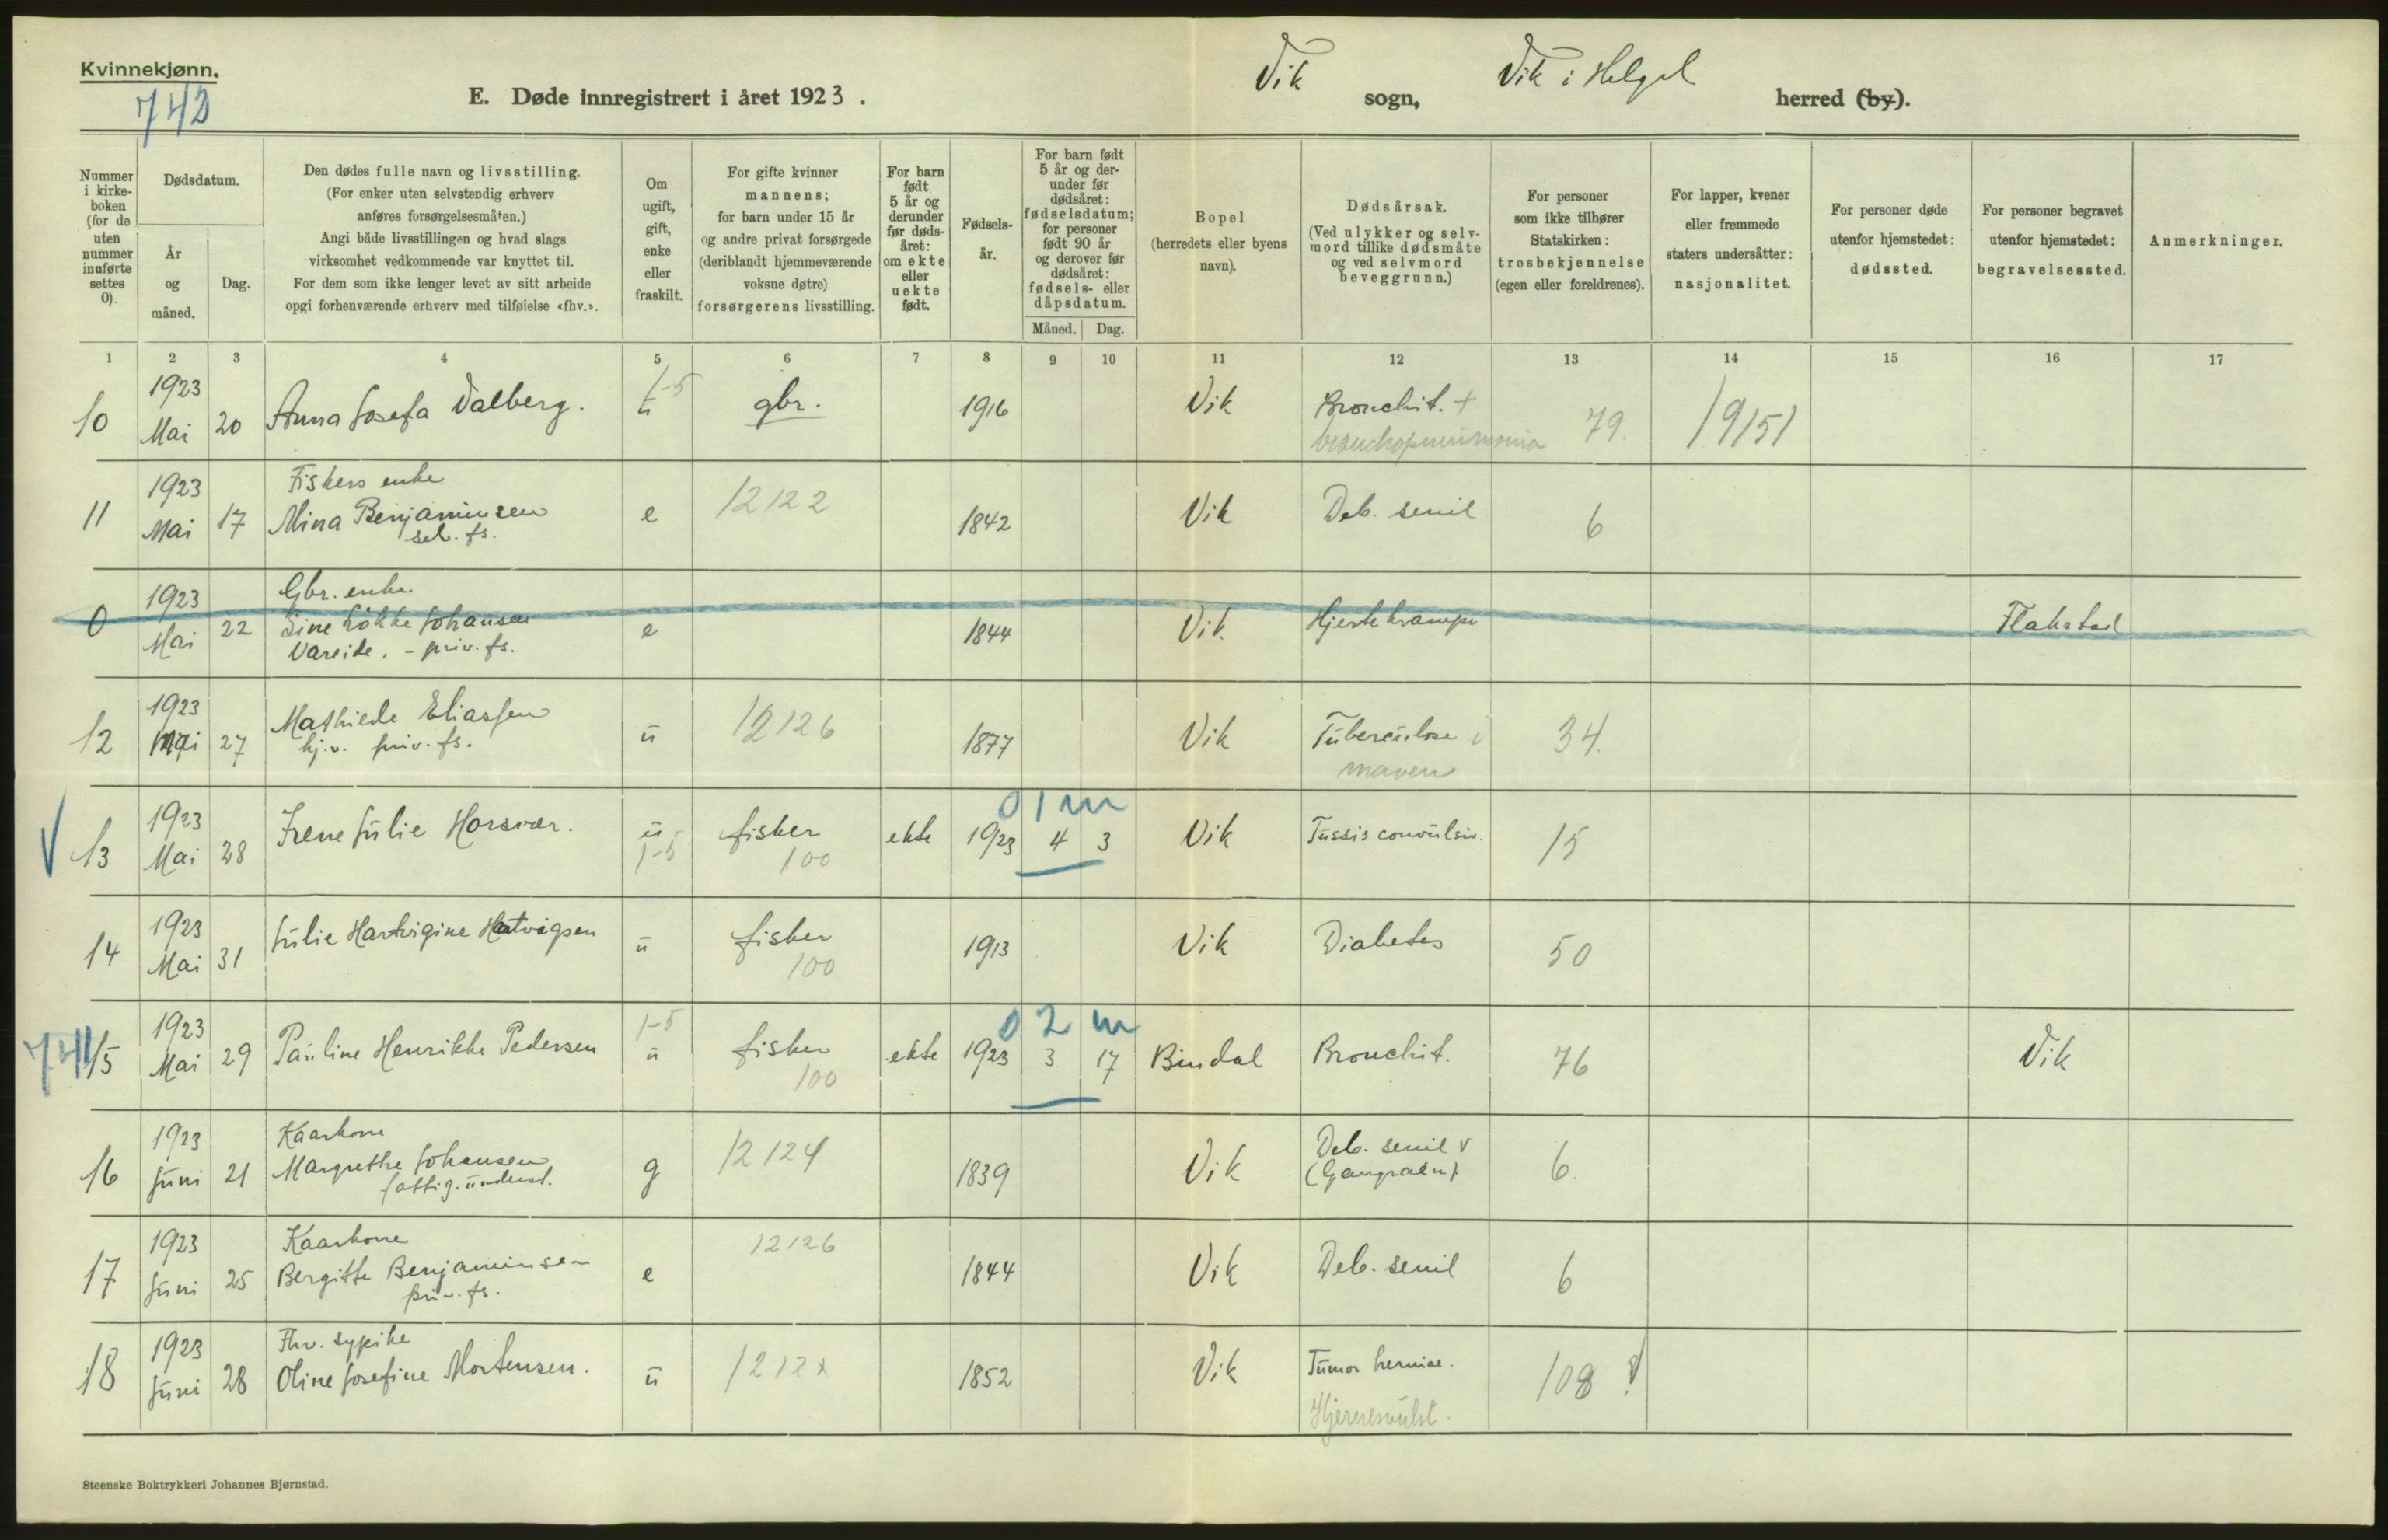 Kvinnekjønn.
742
E. Døde innregistrert i året 1923.
Vik sogn, Vik i Helgel herred (by).
Nummer i kirkeboken (for de uten nummer innførte settes 0).
Dødsdatum.
År og måned.
Dag.
Den dødes fulle navn og livsstilling.
(For enker uten selvstendig erhverv anføres forsørgelsesmåten.)
Angi både livsstillingen og hvad slags virksomhet vedkommende var knyttet til.
For dem som ikke lenger levet av sitt arbeide opgi forhenværende erhverv med tilføielse «fhv.».
Om ugift, gift, enke eller fraskilt.
For gifte kvinner mannens; for barn under 15 år og andre privat forsørgede (deriblandt hjemmeværende voksne døtre) forsørgerens livsstilling.
For barn født 5 år og derunder før dødsåret: om ekte eller uekte født.
Fødselsår.
For barn født 5 år og derunder før dødsåret: fødselsdatum; for personer født 90 år og derover før dødsåret: fødsels- eller dåpsdatum.
Måned. Dag.
Bopel (herredets eller byens navn).
Dødsårsak.
(Ved ulykker og selvmord tillike dødsmåte og ved selvmord beveggrunn.)
For personer som ikke tilhører Statskirken: trosbekjennelse (egen eller foreldrenes).
For lapper, kvener eller fremmede staters undersåtter: nasjonalitet.
For personer døde utenfor hjemstedet: dødssted.
For personer begravet utenfor hjemstedet: begravelsessted.
Anmerkninger.
1 2 3 4 5 6 7 8 9 10 11 12 13 14 15 16 17
10 1923 Mai 20 Anna Josefa Dalberg. 1-5 ü gbr. 1916 Vik Bronchit. + bronchopneumonia 79. 19151
11 1923 Mai 17 Fiskers enke Mina Benjaminsen sel. fs. e 12122 1842 Vik Deb. senil 6
0 1923 Mai 22 Gbr. enke Sine Løkke Johansen Vareide. - priv. fs. e 1844 Vik Hjertekrampe Flakstad
12 1923 Mai 27 Mathilde Eliassen hj.v. priv. fs. ü 12126 1877 Vik Tüberkülose i maven 34.
V 13 1923 Mai 28 Irene Jülie Horsvær. ü 1-5 fisker 100 ekte 1923 4 3 01m Vik Tüssis convülsiv. 15
14 1923 Mai 31 Jülie Hartvigine Hatvigsen ü fisker 100 1913 Vik Diabetes 50
741 15 1923 Mai 29 Paüline Henrikke Pedersen 1-5 ü fisker 100 ekte 1923 3 17 02m Bindal Bronchit. 76 Vik
16 1923 Jüni 21 Kaarkone Margrethe Johansen fattig.ünderst. g 12124 1839 Vik Deb. senil V (Gangraen) 6
17 1923 Jüni 25 Kaarkone Bergitte Benjaminsen priv. fs. e 12126 1844 Vik Deb. senil 6
18 1923 Jüni 28 Fhv. sypike Oline Josefine Mortensen. ü 1212x 1852 Vik Tümor herniae. Hjernesvülst. 108
Steenske Boktrykkeri Johannes Bjørnstad.